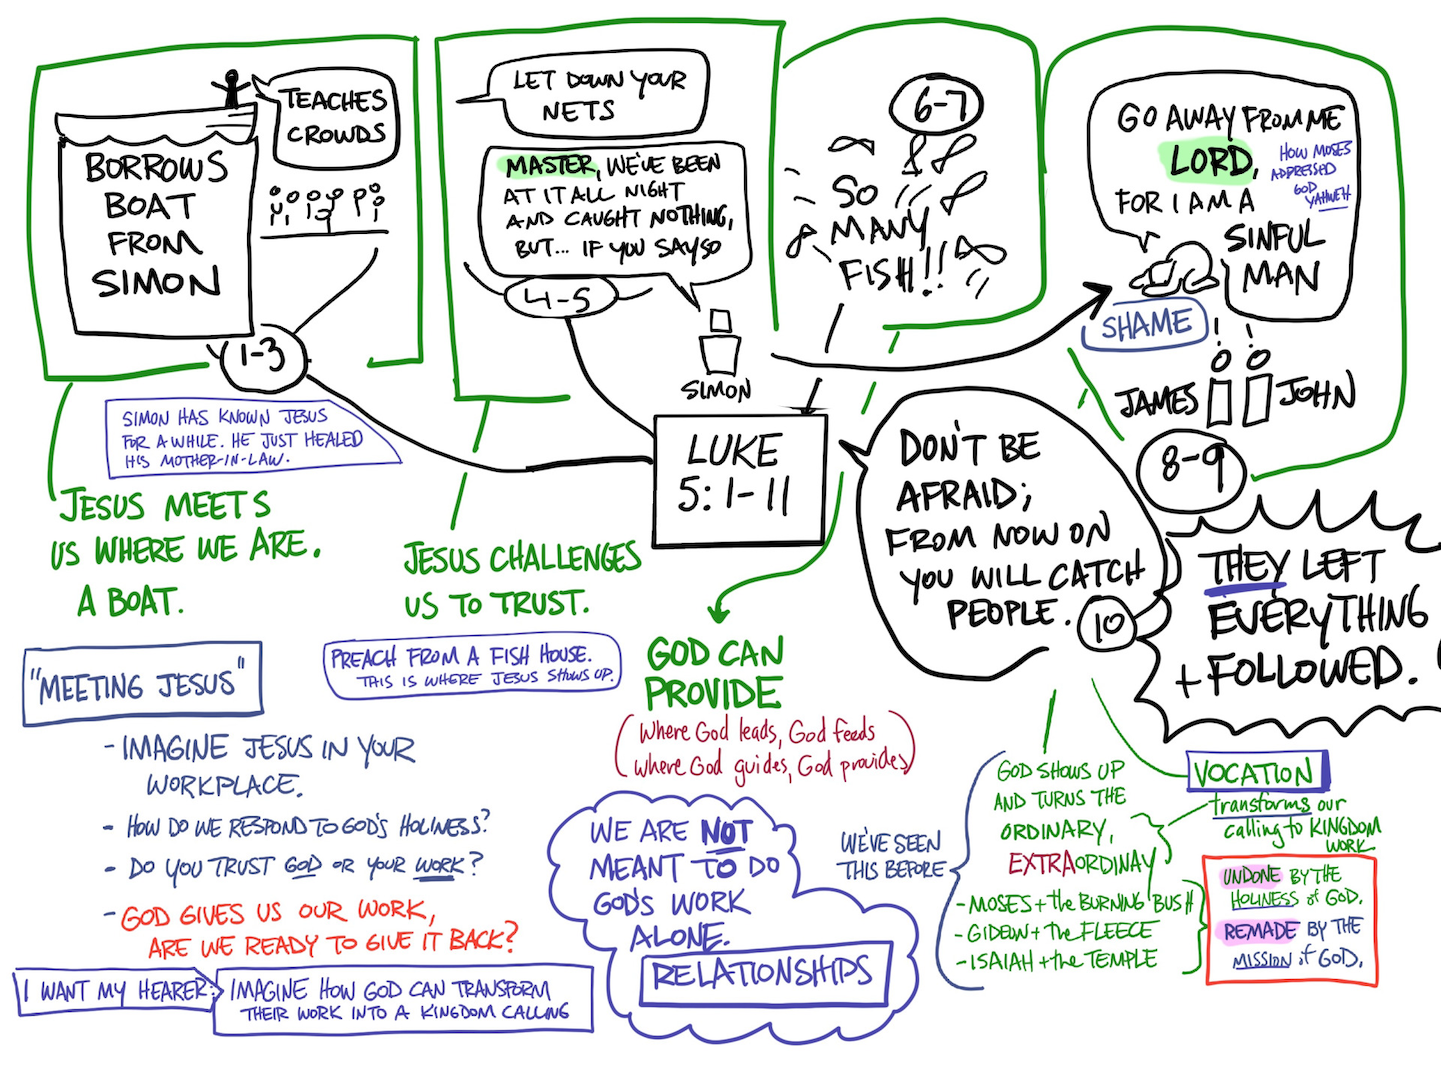 TEACHES
CROWDS
BORROWS
BOAT
FROM
SIMON
1-3
SIMON HAS KNOWN JESUS
FOR A WHILE. HE JUST HEALED
HIS MOTHER-IN-LAW.
JESUS MEETS
US WHERE WE ARE.
A BOAT.
LET DOWN YOUR
NETS
MASTER, WE'VE BEEN
AT IT ALL NIGHT
AND CAUGHT NOTHING,
BUT... IF YOU SAY SO
4-5
SIMON
JESUS CHALLENGES
US TO TRUST.
PREACH FROM A FISH HOUSE.
THIS IS WHERE JESUS SHOWS UP.
6-7
SO
MANY
FISH!!
LUKE
5:1-11
GOD CAN
PROVIDE
(Where God leads, God feeds
where God guides, God provides)
GO AWAY FROM ME
LORD,
FOR I AM A
SINFUL
MAN
HOW MOSES
ADDRESSED
GOD
YAHWEH
SHAME
! !
JAMES
JOHN
8-9
DON'T BE
AFRAID;
FROM NOW ON
YOU WILL CATCH
PEOPLE.
10
THEY LEFT
EVERYTHING
+ FOLLOWED.
"MEETING JESUS"
- IMAGINE JESUS IN YOUR
WORKPLACE.
- HOW DO WE RESPOND TO GOD'S HOLINESS?
- DO YOU TRUST GOD OR YOUR WORK?
- GOD GIVES US OUR WORK,
ARE WE READY TO GIVE IT BACK?
I WANT MY HEARER:
IMAGINE HOW GOD CAN TRANSFORM
THEIR WORK INTO A KINGDOM CALLING
WE ARE NOT
MEANT TO DO
GOD'S WORK
ALONE.
RELATIONSHIPS
WE'VE SEEN
THIS BEFORE
GOD SHOWS UP
AND TURNS THE
ORDINARY,
EXTRAORDINAY
- MOSES + the BURNING BUSH
- GIDEON + the FLEECE
- ISAIAH + the TEMPLE
VOCATION
transforms our
calling to KINGDOM
WORK
UNDONE BY THE
HOLINESS of GOD.
REMADE BY THE
MISSION of GOD.